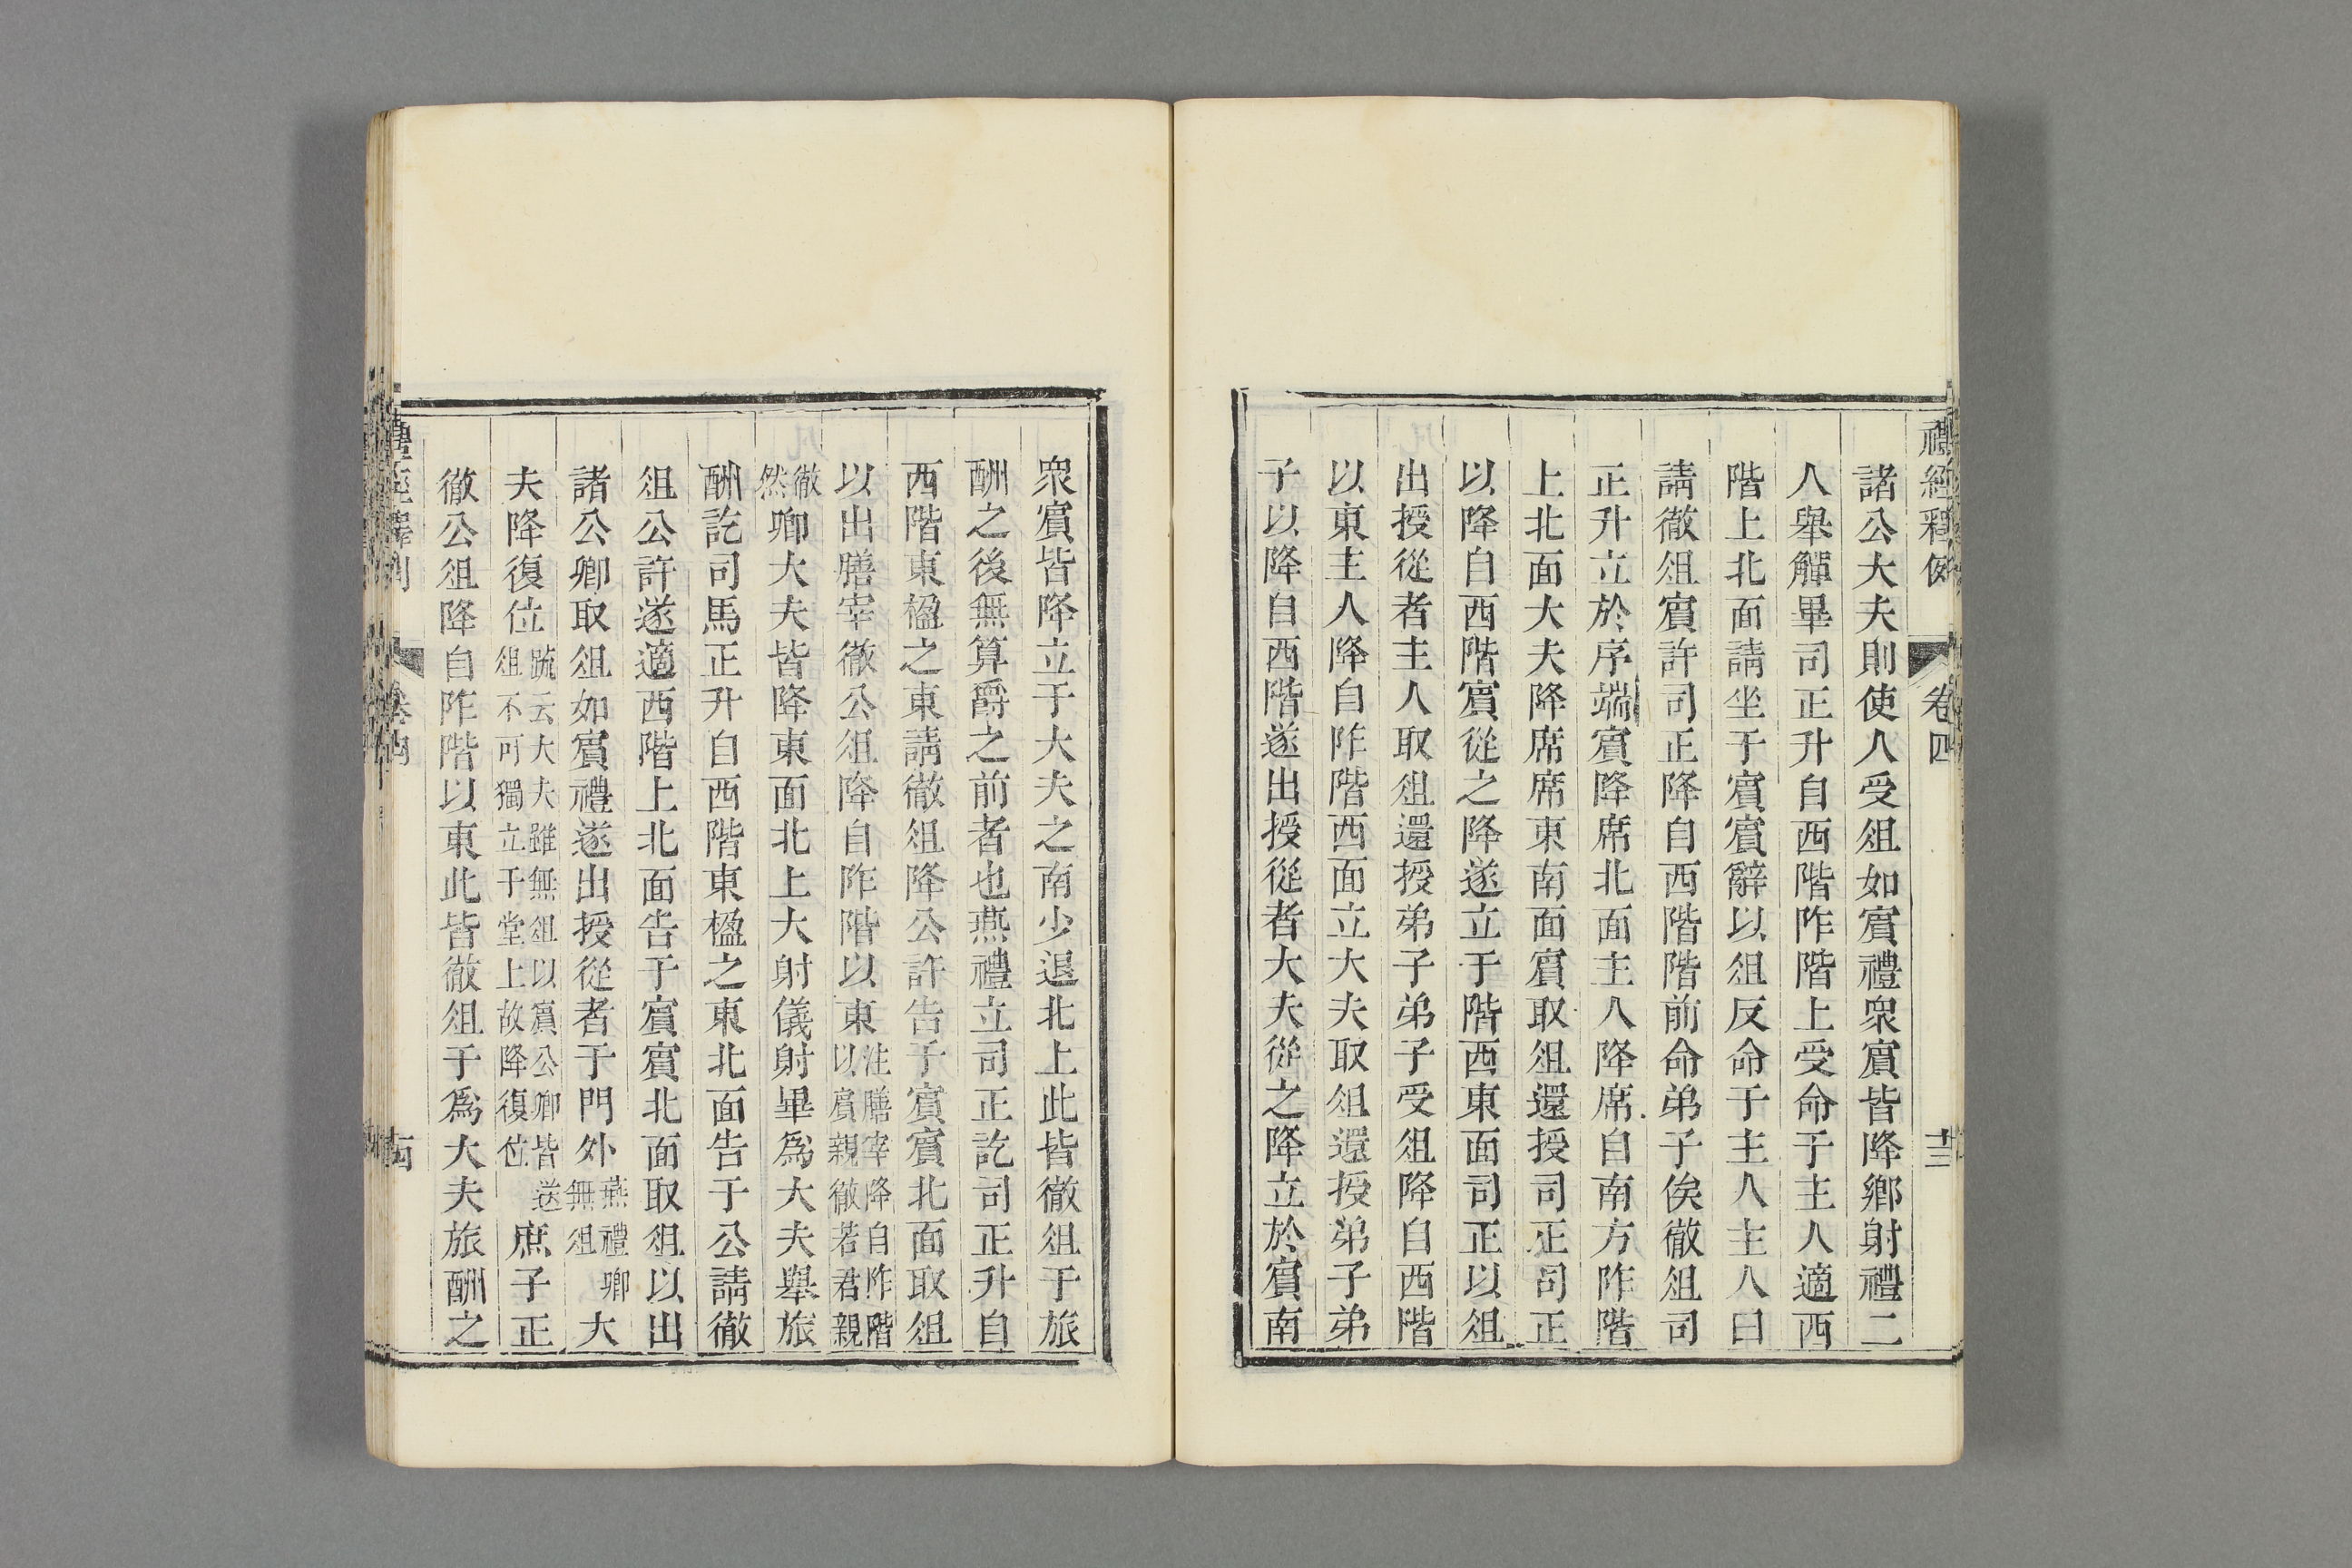 禮經釋例 卷四 十三
諸公大夫則使人受俎如賓禮衆賓皆降鄉射禮二
人舉觶畢司正升自西階阼階上受命于主人適西
階上北面請坐于賓賓辭以俎反命于主人主人曰
請徹俎賓許司正降自西階階前命弟子俟徹俎司
正升立於序端賓降席北面主人降席自南方阼階
上北面大夫降席席東南面賓取俎還授司正司正
以降自西階賓從之降遂立于階西東面司正以俎
出授從者主人取俎還授弟子弟子受俎降自西階
以東主人降自阼階西面立大夫取俎還授弟子弟
子以降自西階遂出授從者大夫從之降立於賓南
衆賓皆降立于大夫之南少退北上此皆徹俎于旅
酬之後無算爵之前者也燕禮立司正訖司正升自
西階東楹之東請徹俎降公許告于賓賓北面取俎
以出膳宰徹公俎降自阼階以東注膳宰降自阼階以賓親徹若君親
徹然卿大夫皆降東面北上大射儀射畢爲大夫舉旅
酬訖司馬正升自西階東楹之東北面告于公請徹
俎公許遂適西階上北面告于賓賓北面取俎以出
諸公卿取俎如賓禮遂出授從者于門外燕禮卿無俎大
夫降復位疏云大夫雖無俎以賓公卿皆送俎不可獨立于堂上故降復位庶子正
徹公俎降自阼階以東此皆徹俎于爲大夫旅酬之
禮經釋例 卷四 十四